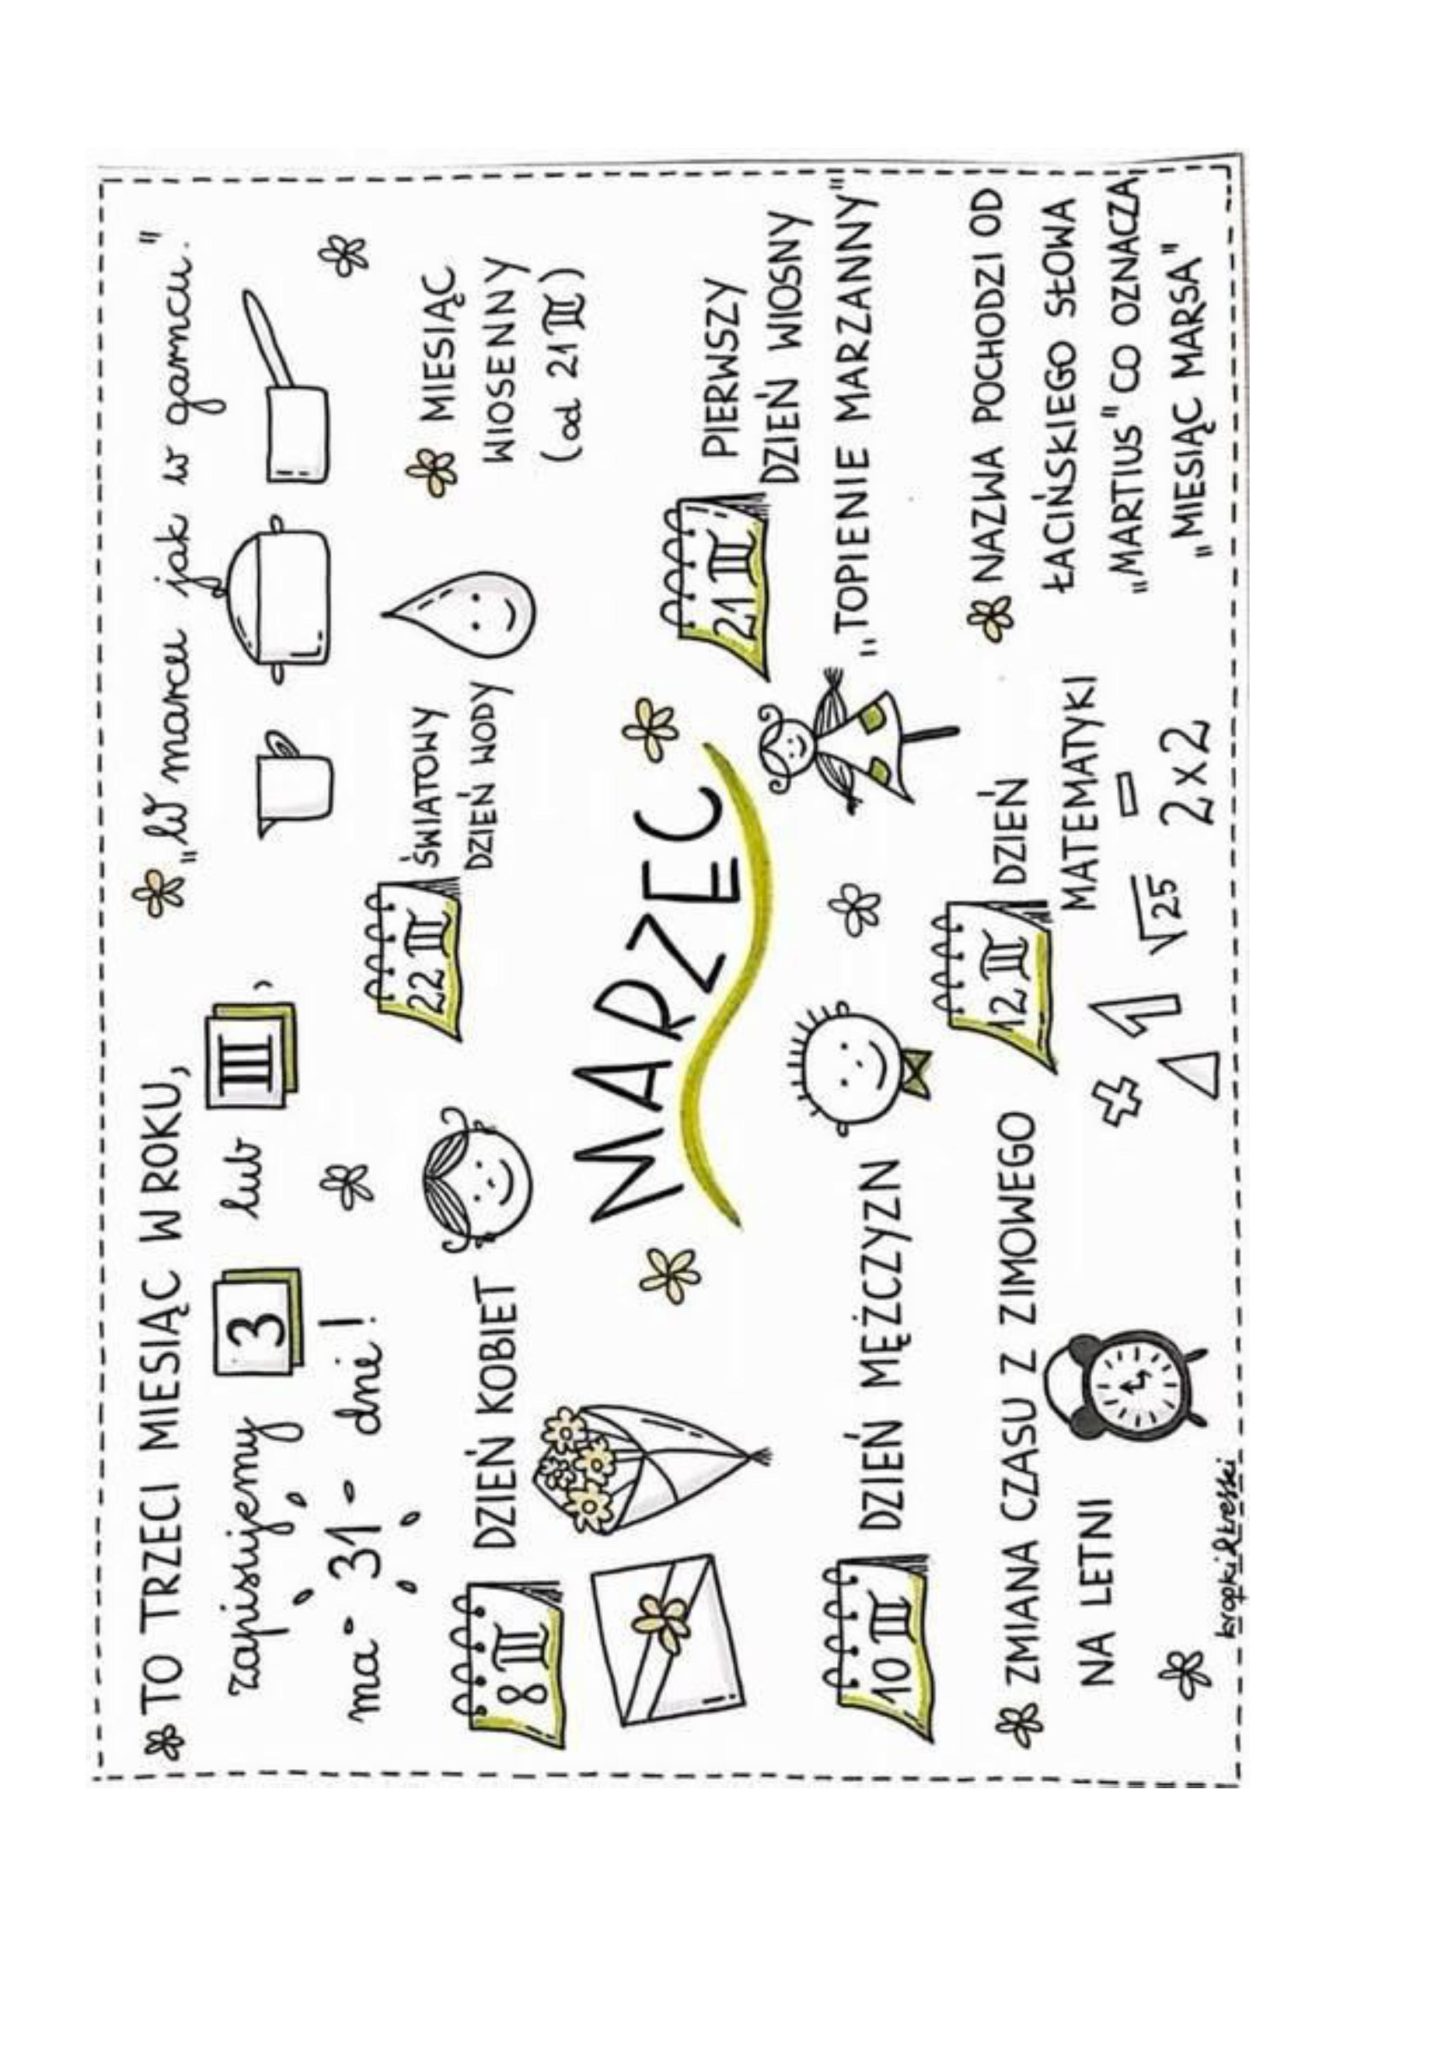 TO TRZECI MIESIĄC W ROKU,
zapisujemy 3 lub III,
ma 31 dni!
„W marcu jak w garncu."
8 III
DZIEŃ KOBIET
22 III
ŚWIATOWY
DZIEŃ WODY
MIESIĄC
WIOSENNY
(od 21 III)
MARZEC
21 III
PIERWSZY
DZIEŃ WIOSNY
„TOPIENIE MARZANNY"
10 III
DZIEŃ MĘŻCZYZN
12 III
DZIEŃ
MATEMATYKI
+ 1 √25 –
2x2
ZMIANA CZASU Z ZIMOWEGO
NA LETNI
NAZWA POCHODZI OD
ŁACIŃSKIEGO SŁOWA
„MARTIUS" CO OZNACZA
„MIESIĄC MARSA"
kropki&kreski